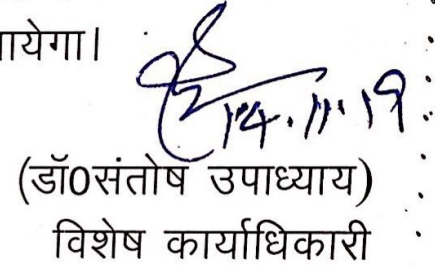 ायेगा।
14.11.19
(डॉ0संतोष उपाध्याय)
विशेष कार्याधिकारी